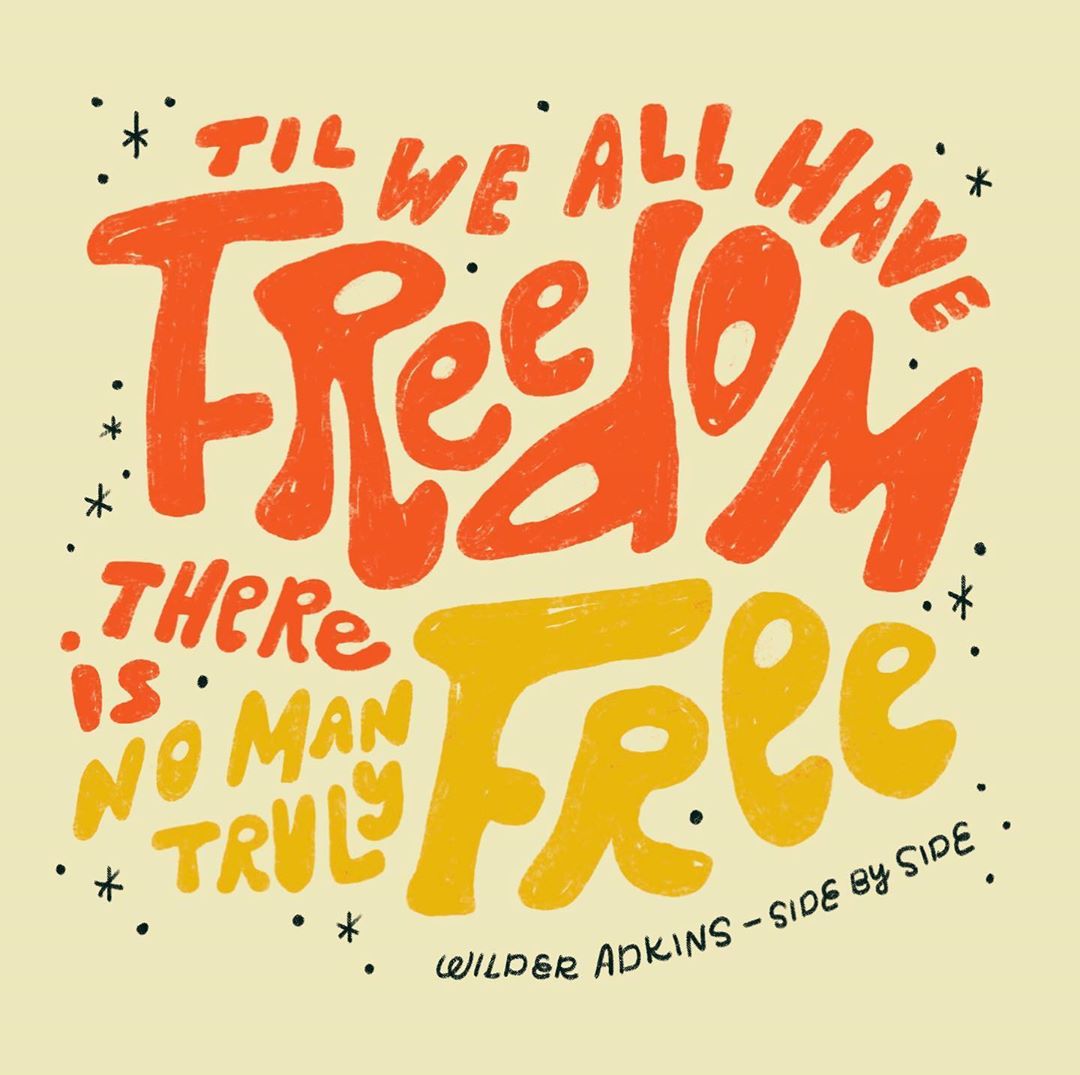 TIL WE ALL HAVE
FReedOM
THeRe
is
NO MAN
TRULY
FRee
WILDER ADKINS – SIDE BY SIDE